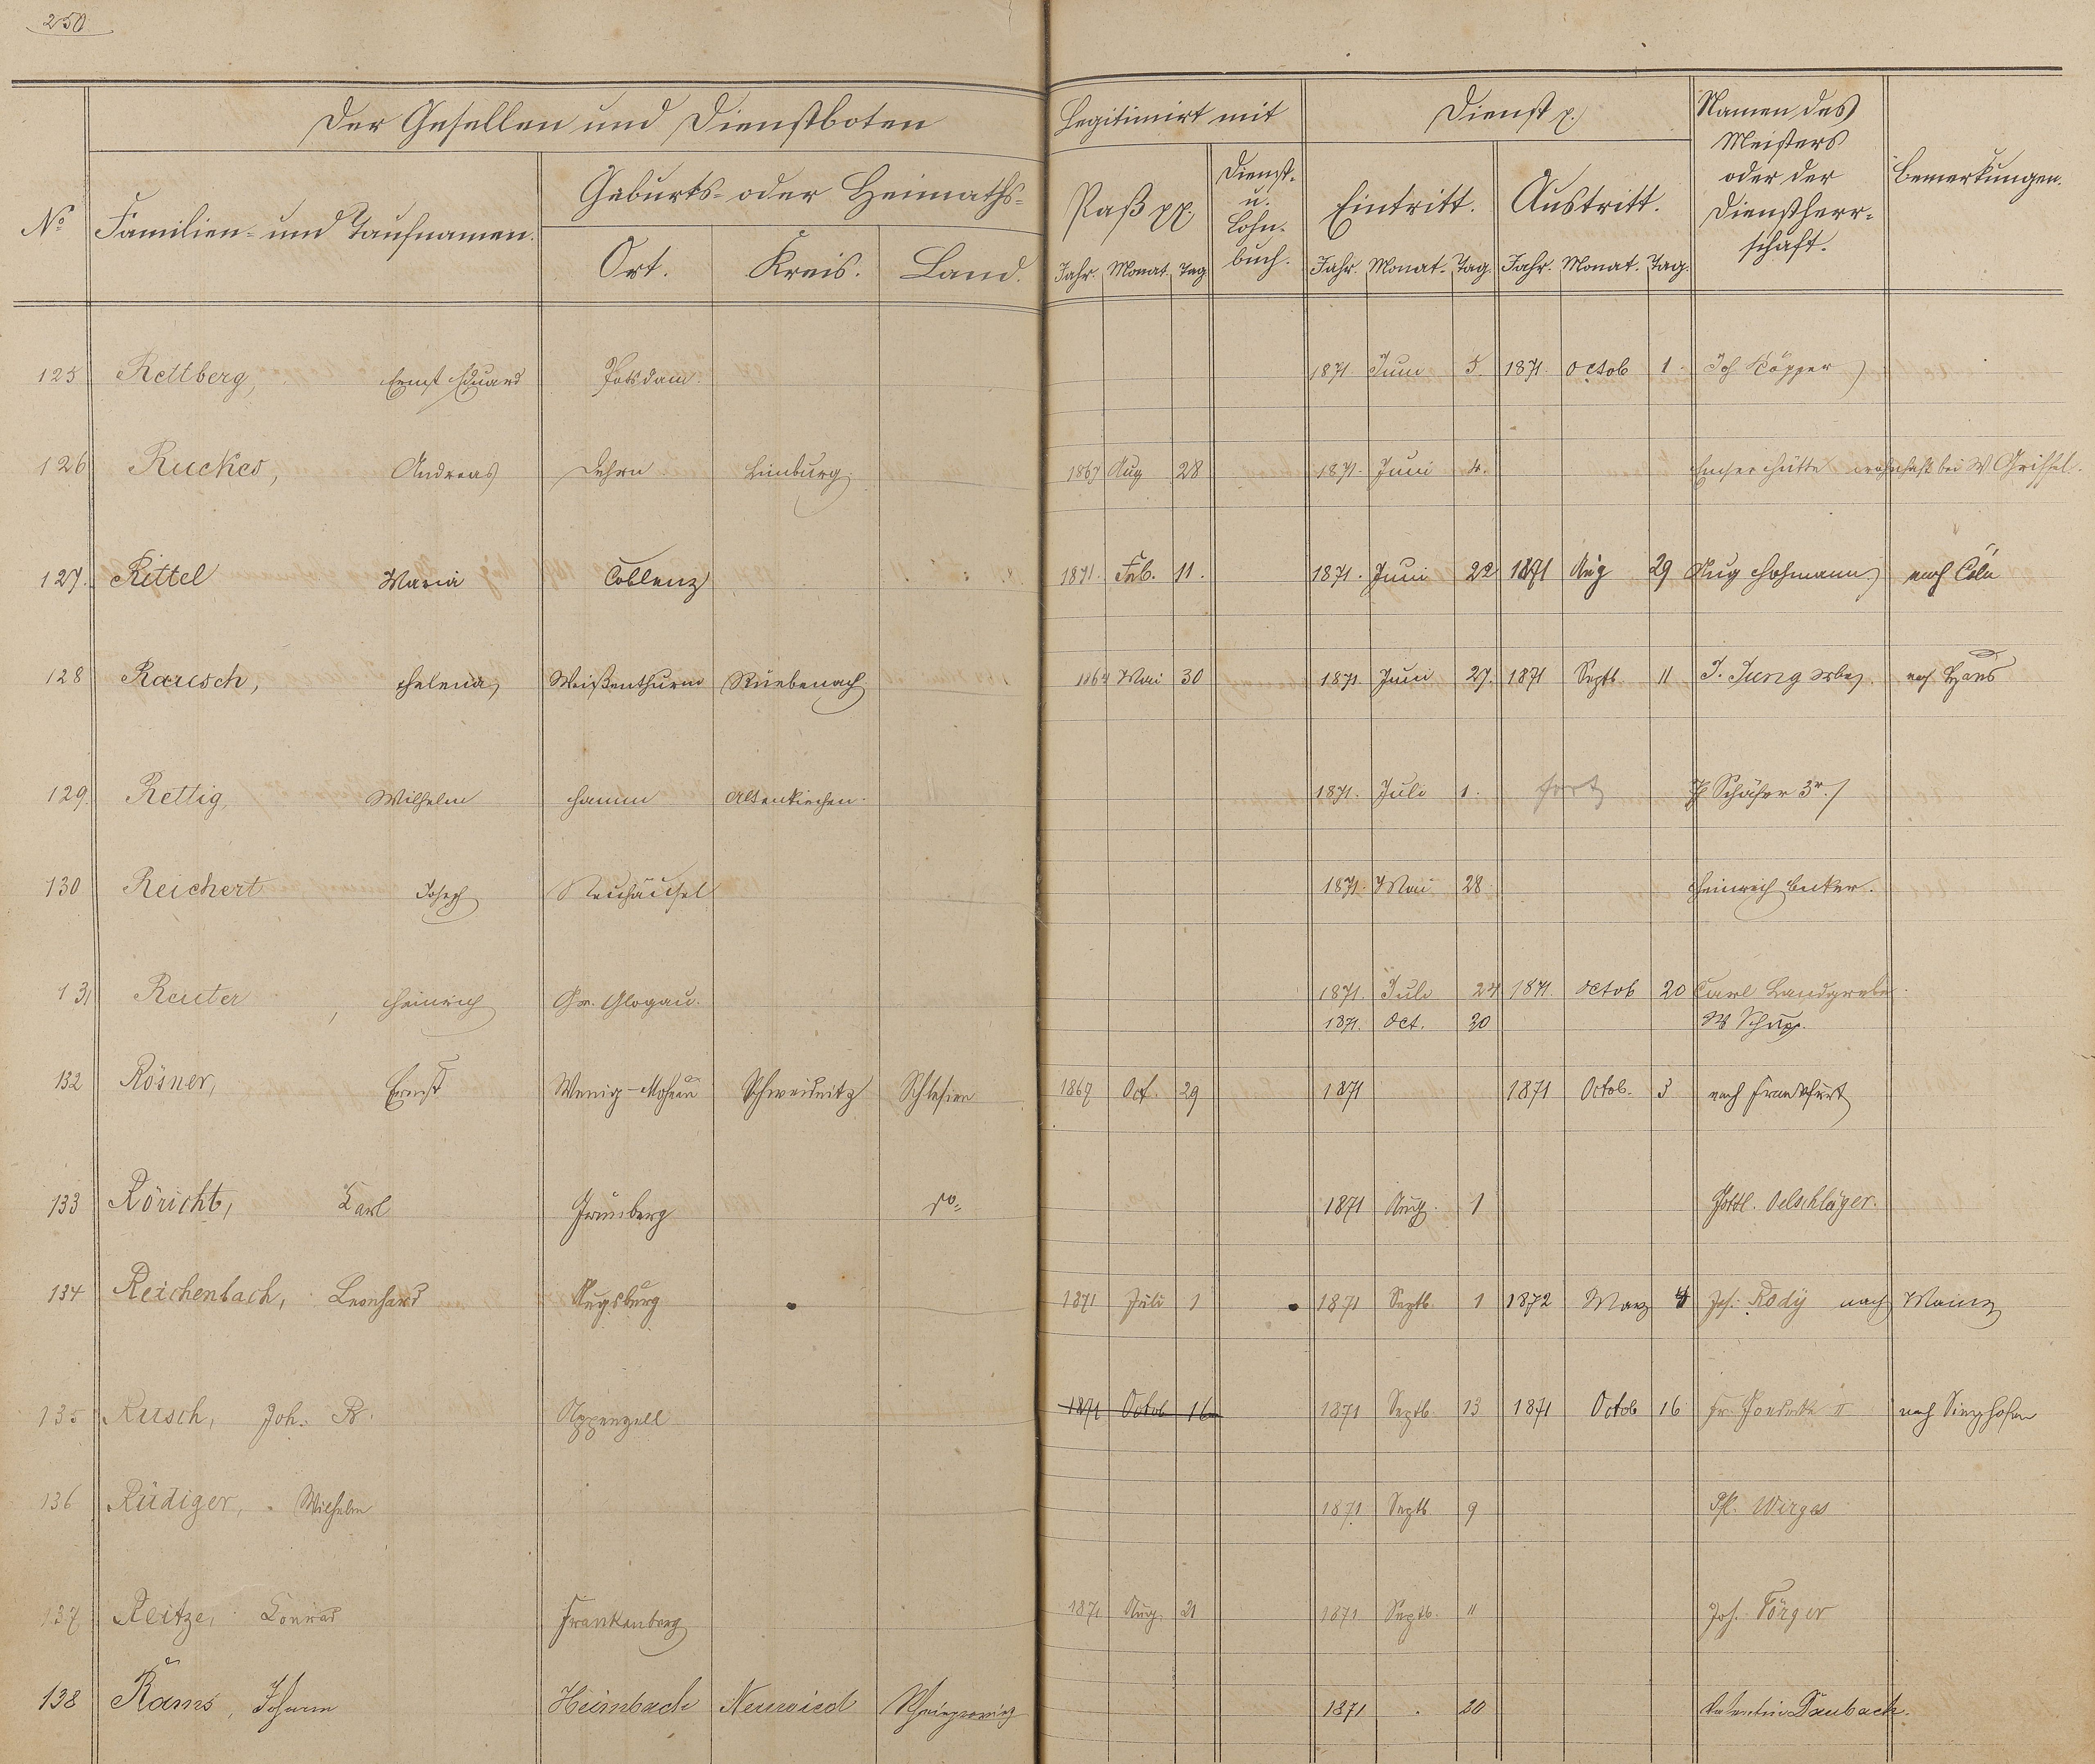 250
Der Gesellen und Dienstboten
Legitimirt mit
Dienst p.
Namen des Meisters oder der Dienstherrschaft.
Bemerkungen.
No
Familien- und Taufnamen.
Geburts- oder Heimaths-
Ort. Kreis. Land.
Paß pp.
Dienst- u. Lohn- buch.
Eintritt. Austritt.
Jahr. Monat. Tag Jahr. Monat. Tag. Jahr. Monat. Tag.
125 Rettberg, Ernst Eduard Potsdam. 1871 Juni 5. 1871. Octob 1. Joh Köpper
126 Ruckes, Andreas Dehrn Limburg. 1867 Aug 28 1871. Juni 4. Emserhütte wohnhaft bei W
127. Rittel Maria Coblenz 1871. Feb. 11. 1871. Juni 22 1871 Aug 29 Aug Hohmann nach Cöln
128 Rausch, Helena Weißenthurm Rübenach 1864 Mai 30 1871. Juni 27. 1871 Septb. 11 J. Jung nach Haus
129. Rettig, Wilhelm Hamm Altenkirchen. 1871. Juli 1. fort Schäfer 3r.
130 Reichert Joseph Neuhäusel 1871. Mai 28 Heinrich Becker.
131 Reuter, Heinrich Gr. Glogau. 1871. Juli 24 1871. Octob 20 Carl Landgrebe
1871. Oct. 20 W Schupp.
132 Rösner, Ernst Wenig-Mohnau Schweidnitz Schlesien 1869 Oct. 29 1871 1871 Octob. 3 nach Frankfurt
133 Röricht, Karl Grünberg do. 1871 Aug. 1 Gottl. Oelschläger.
134 Reichenbach, Leonhard Augsburg 1871 Juli 1 1871 Septb. 1 1872 Marz 4 Jos. Rody nach Mainz
135 Rusch, Joh. B. Appenzell 1871 Octob 16 1871 Septb. 13 1871 Octob 16 Fr. II nach Singhofen
136 Rüdiger, Wilhelm 1871 Septb. 9 Wirges
137 Reitze, Konrad Frankenberg 1871 Aug. 21 1871 Septb. 11 Joh. Törger
138 Rams, Johann Heimbach Neuwied Rheinprovinz 1871 20 Valentin Daubach.